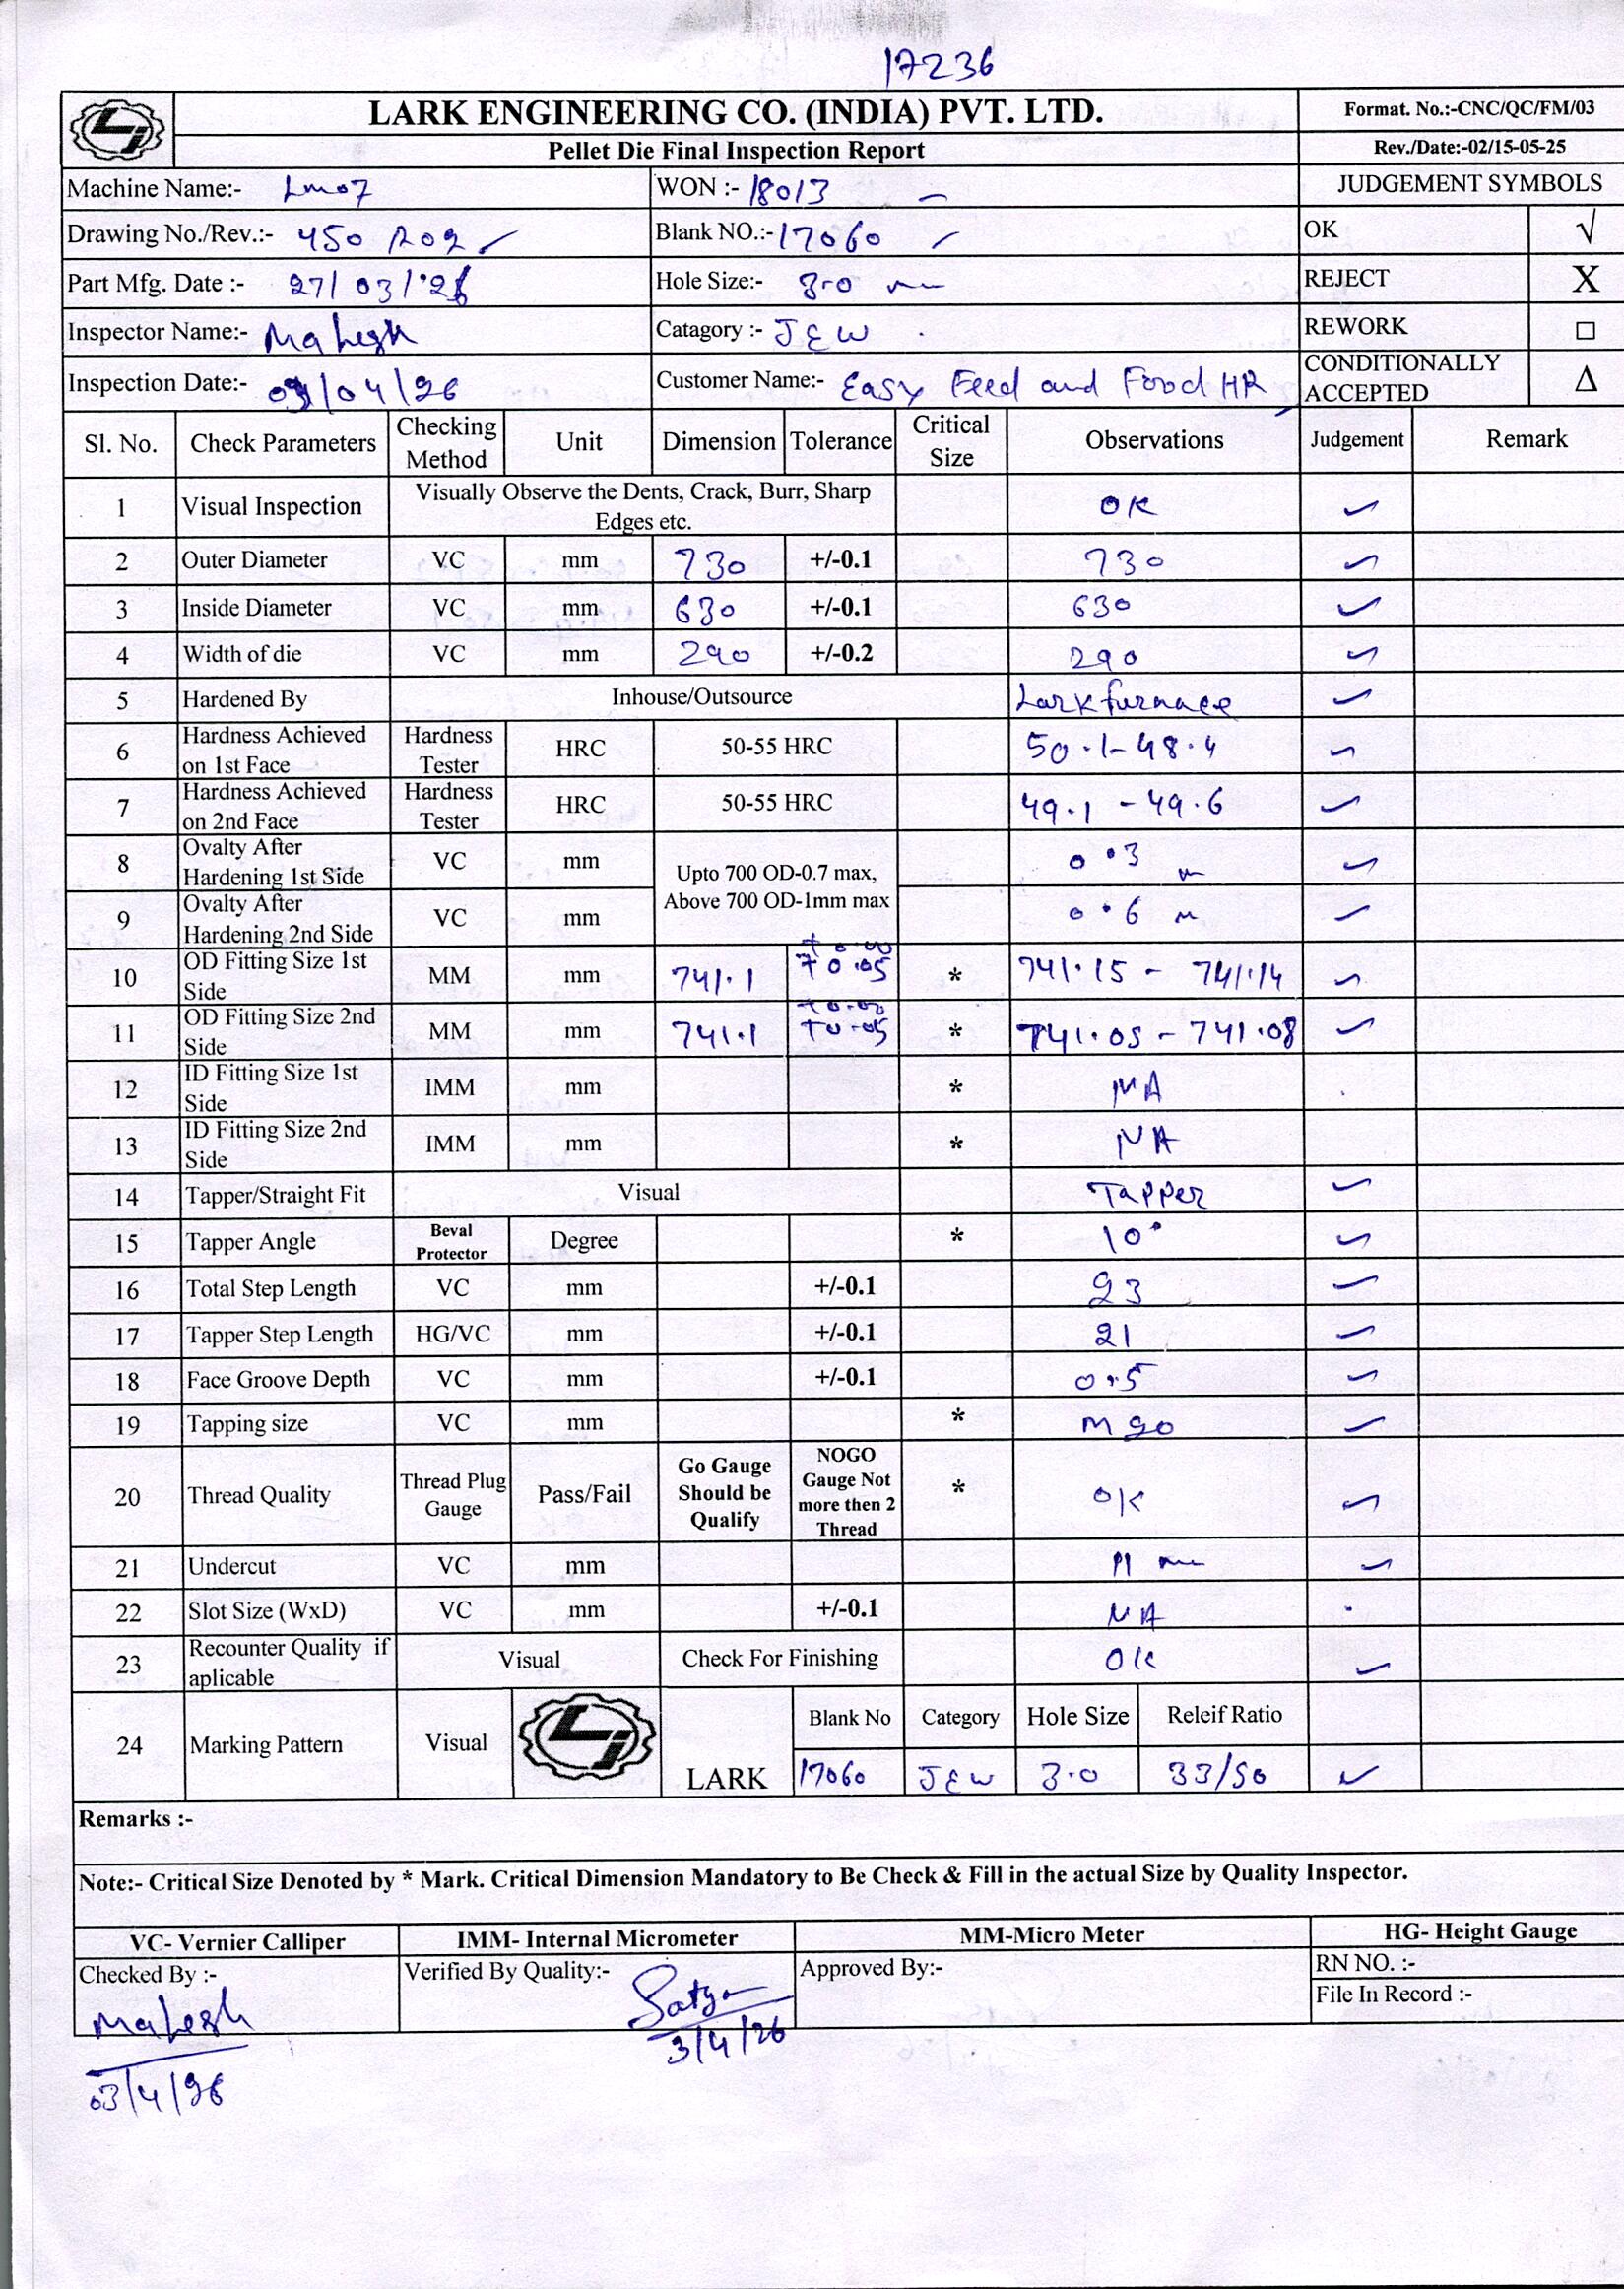 17236
LARK ENGINEERING CO. (INDIA) PVT. LTD.
Format. No.:-CNC/QC/FM/03
Pellet Die Final Inspection Report
Rev./Date:-02/15-05-25
Machine Name:- Lm07 WON :- 18013 JUDGEMENT SYMBOLS
Drawing No./Rev.:- 450 R02 Blank NO.:- 17060 OK √
Part Mfg. Date :- 27/03/26 Hole Size:- 3.0 REJECT X
Inspector Name:- Mahesh Catagory :- J E W REWORK □
Inspection Date:- 03/04/26 Customer Name:- Easy Feed and Food HR CONDITIONALLY ACCEPTED Δ
Sl. No. Check Parameters Checking Method Unit Dimension Tolerance Critical Size Observations Judgement Remark
1 Visual Inspection Visually Observe the Dents, Crack, Burr, Sharp Edges etc. OK ✓
2 Outer Diameter VC mm 730 +/-0.1 730 ✓
3 Inside Diameter VC mm 630 +/-0.1 630 ✓
4 Width of die VC mm 290 +/-0.2 290 ✓
5 Hardened By Inhouse/Outsource Lark furnace ✓
6 Hardness Achieved on 1st Face Hardness Tester HRC 50-55 HRC 50.1-48.4 ✓
7 Hardness Achieved on 2nd Face Hardness Tester HRC 50-55 HRC 49.1 - 49.6 ✓
8 Ovalty After Hardening 1st Side VC mm Upto 700 OD-0.7 max, Above 700 OD-1mm max 0.3 ✓
9 Ovalty After Hardening 2nd Side VC mm 0.6 ✓
10 OD Fitting Size 1st Side MM mm 741.1 +0.00 +0.05 * 741.15 - 741.14 ✓
11 OD Fitting Size 2nd Side MM mm 741.1 +0.00 +0.05 * 741.05 - 741.08 ✓
12 ID Fitting Size 1st Side IMM mm * NA
13 ID Fitting Size 2nd Side IMM mm * NA
14 Tapper/Straight Fit Visual Tapper ✓
15 Tapper Angle Beval Protector Degree * 10° ✓
16 Total Step Length VC mm +/-0.1 23 ✓
17 Tapper Step Length HG/VC mm +/-0.1 21 ✓
18 Face Groove Depth VC mm +/-0.1 0.5 ✓
19 Tapping size VC mm * M20 ✓
20 Thread Quality Thread Plug Gauge Pass/Fail Go Gauge Should be Qualify NOGO Gauge Not more then 2 Thread * OK ✓
21 Undercut VC mm ✓
22 Slot Size (WxD) VC mm +/-0.1 NA
23 Recounter Quality if aplicable Visual Check For Finishing OK ✓
24 Marking Pattern Visual LARK Blank No Category Hole Size Releif Ratio
17060 J E W 3.0 33/50 ✓
Remarks :-
Note:- Critical Size Denoted by * Mark. Critical Dimension Mandatory to Be Check & Fill in the actual Size by Quality Inspector.
VC- Vernier Calliper IMM- Internal Micrometer MM-Micro Meter HG- Height Gauge
Checked By :- Verified By Quality:- Approved By:- RN NO. :-
File In Record :-
Mahesh Satya
03/4/26 3/4/26